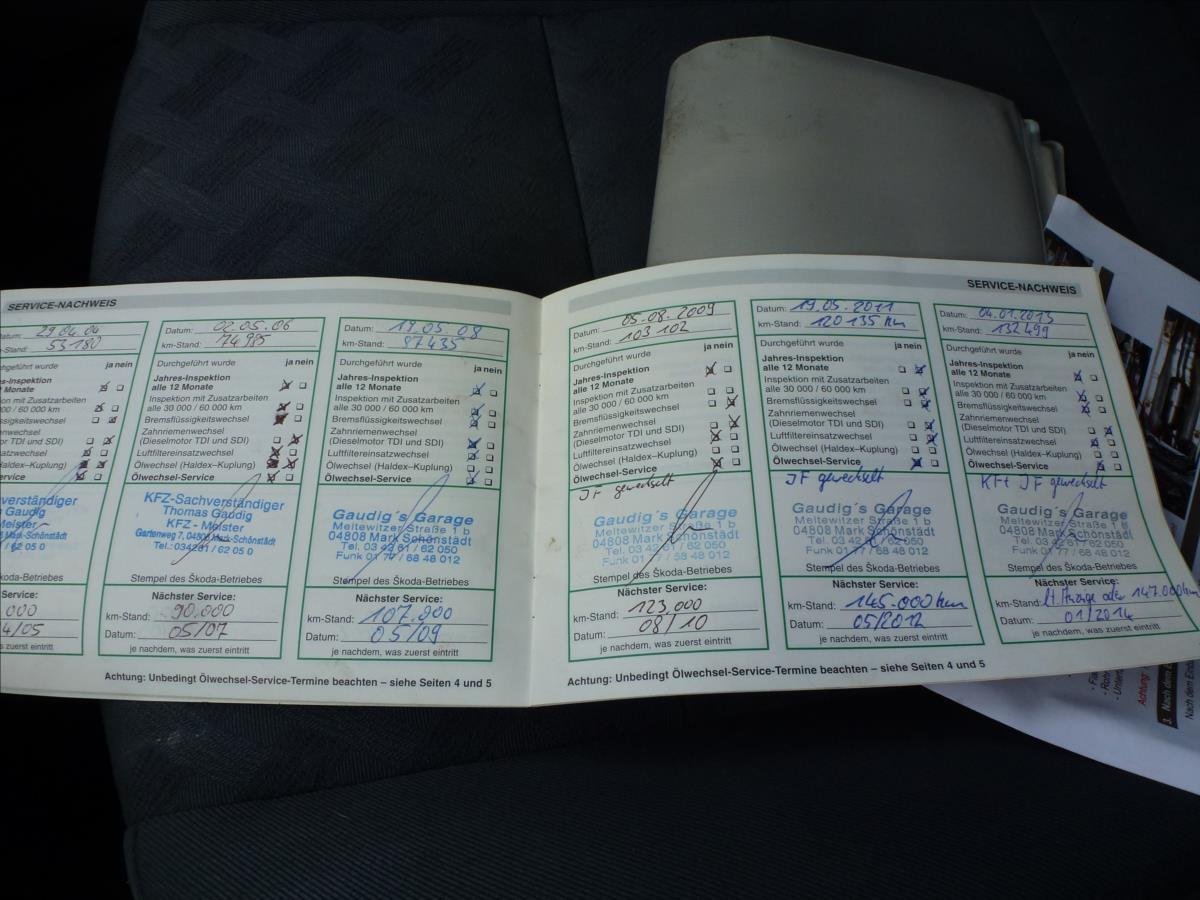 SERVICE-NACHWEIS
Datum: 29.04.04
km-Stand: 53180
ja nein
Jahres-Inspektion
12 Monate
Inspektion mit Zusatzarbeiten
000 / 60 000 km
(Dieselmotor TDI und SDI)
(Haldex–Kuplung)
Öl-Service
KFZ-Sachverständiger
Thomas Gaudig
Stempel des Škoda-Betriebes
Nächster Service:
000
4/05
je nachdem, was zuerst eintritt
Datum: 02.05.06
km-Stand: 74985
Durchgeführt wurde ja nein
Jahres-Inspektion
alle 12 Monate
Inspektion mit Zusatzarbeiten
alle 30 000 / 60 000 km
Bremsflüssigkeitswechsel
Zahnriemenwechsel
(Dieselmotor TDI und SDI)
Luftfiltereinsatzwechsel
Ölwechsel (Haldex–Kuplung)
Ölwechsel-Service
KFZ-Sachverständiger
Thomas Gaudig
KFZ - Meister
Gartenweg 7, 04808 Mark-Schönstädt
Tel.: 034261/ 62 05 0
Stempel des Škoda-Betriebes
Nächster Service:
km-Stand: 90.000
Datum: 05/07
je nachdem, was zuerst eintritt
Datum: 19.05.08
km-Stand: 87435
Durchgeführt wurde ja nein
Jahres-Inspektion
alle 12 Monate
Inspektion mit Zusatzarbeiten
alle 30 000 / 60 000 km
Bremsflüssigkeitswechsel
Zahnriemenwechsel
(Dieselmotor TDI und SDI)
Luftfiltereinsatzwechsel
Ölwechsel (Haldex–Kuplung)
Ölwechsel-Service
Gaudig´s Garage
Meltewitzer Straße 1 b
04808 Mark Schönstädt
Tel. 03 42 61 / 62 050
Funk 01 77 / 68 48 012
Stempel des Škoda-Betriebes
Nächster Service:
km-Stand: 107.000
Datum: 05/09
je nachdem, was zuerst eintritt
Achtung: Unbedingt Ölwechsel-Service-Termine beachten – siehe Seiten 4 und 5
SERVICE-NACHWEIS
Datum: 05.08.2009
km-Stand: 103102
Durchgeführt wurde ja nein
Jahres-Inspektion
alle 12 Monate
Inspektion mit Zusatzarbeiten
alle 30 000 / 60 000 km
Bremsflüssigkeitswechsel
Zahnriemenwechsel
(Dieselmotor TDI und SDI)
Luftfiltereinsatzwechsel
Ölwechsel (Haldex–Kuplung)
Ölwechsel-Service
JF gewechselt
Gaudig´s Garage
Meltewitzer Straße 1 b
04808 Mark Schönstädt
Tel. 03 42 61 / 62 050
Funk 01 77 / 68 48 012
Stempel des Škoda-Betriebes
Nächster Service:
km-Stand: 123.000
Datum: 08/10
je nachdem, was zuerst eintritt
Datum: 19.05.2011
km-Stand: 120135 km
Durchgeführt wurde ja nein
Jahres-Inspektion
alle 12 Monate
Inspektion mit Zusatzarbeiten
alle 30 000 / 60 000 km
Bremsflüssigkeitswechsel
Zahnriemenwechsel
(Dieselmotor TDI und SDI)
Luftfiltereinsatzwechsel
Ölwechsel (Haldex–Kuplung)
Ölwechsel-Service
JF gewechselt
Gaudig´s Garage
Meltewitzer Straße 1 b
04808 Mark Schönstädt
Tel. 03 42 61 / 62 050
Funk 01 77 / 68 48 012
Stempel des Škoda-Betriebes
Nächster Service:
km-Stand: 145.000 km
Datum: 05/2012
je nachdem, was zuerst eintritt
Datum: 04.01.2013
km-Stand: 132499
Durchgeführt wurde ja nein
Jahres-Inspektion
alle 12 Monate
Inspektion mit Zusatzarbeiten
alle 30 000 / 60 000 km
Bremsflüssigkeitswechsel
Zahnriemenwechsel
(Dieselmotor TDI und SDI)
Luftfiltereinsatzwechsel
Ölwechsel (Haldex–Kuplung)
Ölwechsel-Service
KFt JF gewechselt
Gaudig´s Garage
Meltewitzer Straße 1 b
04808 Mark Schönstädt
Tel. 03 42 61 / 62 050
Funk 01 77 / 68 48 012
Stempel des Škoda-Betriebes
Nächster Service:
km-Stand: lt. Anzeige oder 147.000 km
Datum: 01/2014
je nachdem, was zuerst eintritt
Achtung: Unbedingt Ölwechsel-Service-Termine beachten – siehe Seiten 4 und 5
Achtung
3. Nach dem